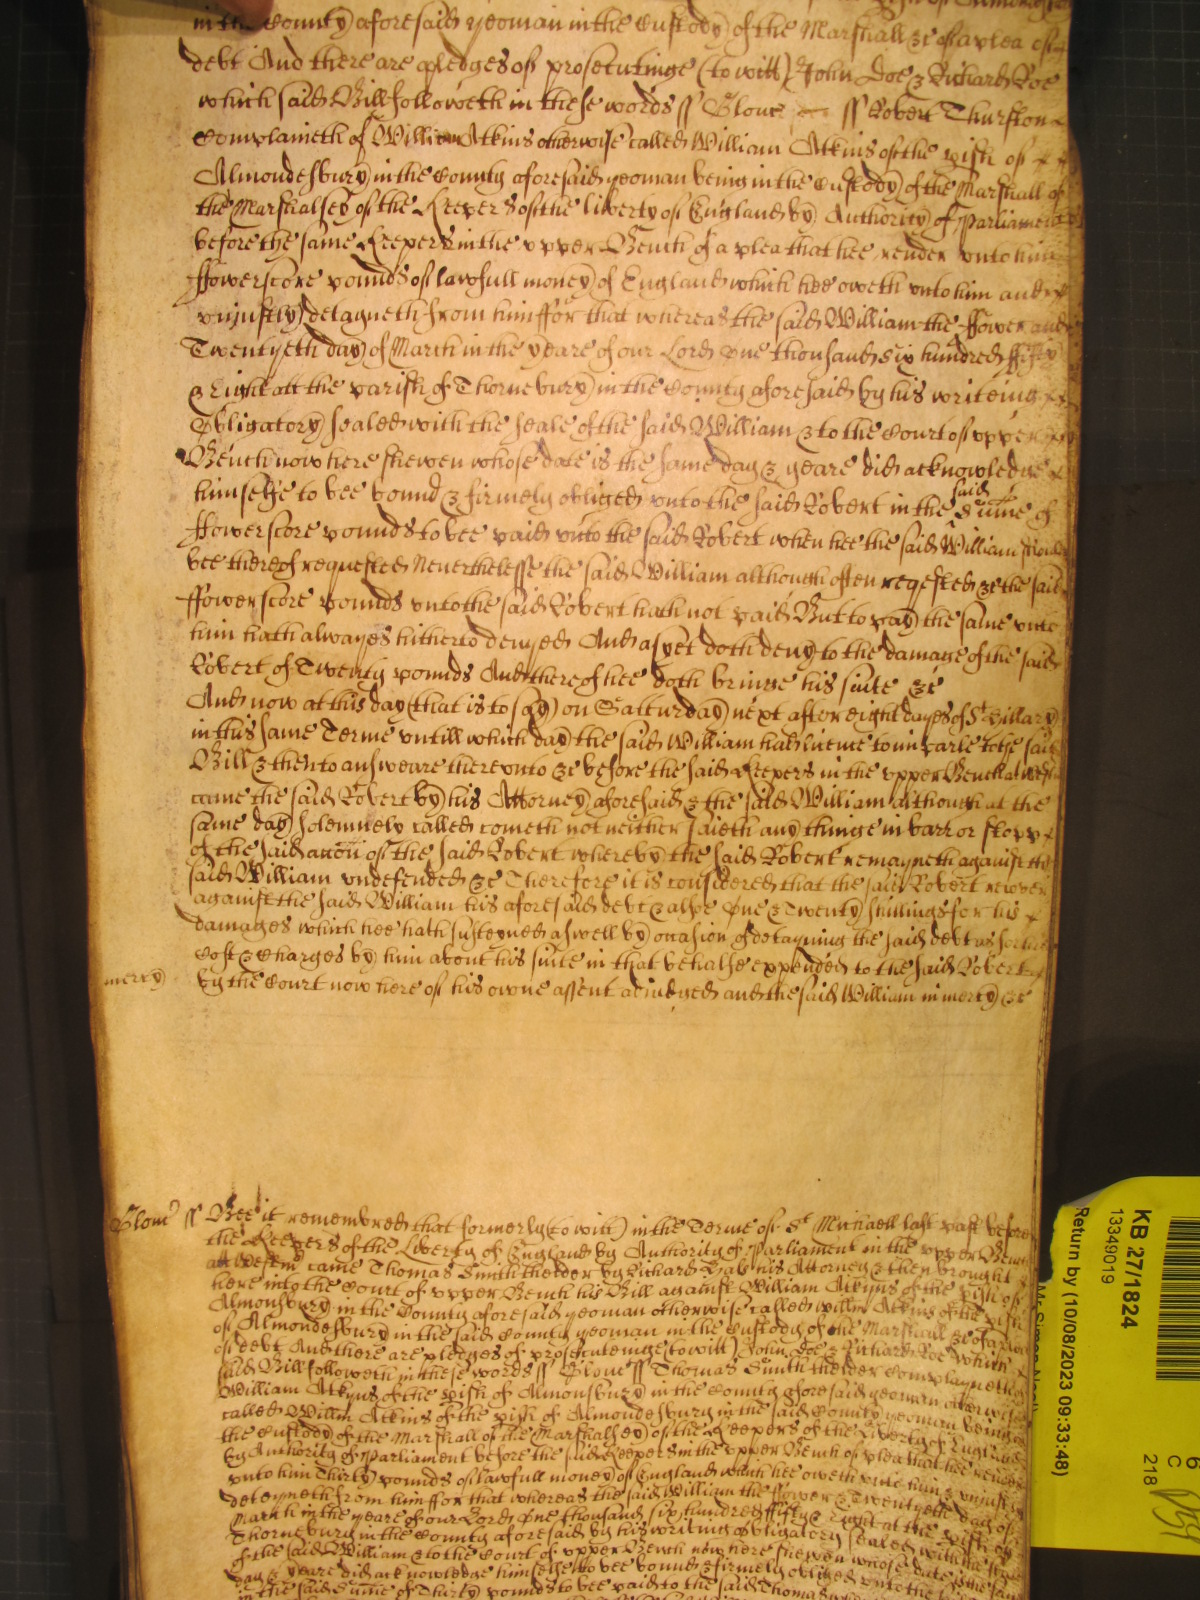 in the County aforesaid yeoman in the Custody of the Marshall &c of a plea of
debt And there are pledges of prosecutinge (to witt) John Doe & Richard Roe
which said Bill followeth in these words ss Glouc ss Robert Thurston
Complaineth of William Atkins otherwise called William Atkins of the pish of
Almondesbury in the County aforesaid yeoman being in the Custody of the Marshall of
the Marshalsey of the Keepers of the liberty of England by Authority of Parliament
before the same Keepers in the vpper Bench of a plea that hee render vnto him
ffowerscore pounds of lawfull money of England which hee oweth vnto him and
vniustly detayneth from him ffor that whereas the said William the ffower and
Twentyeth day of March in the yeare of our Lord One thousand six hundred ffifty
& Eight att the parish of Thornebury in the County aforesaid by his writeing
Obligatory sealed with the seale of the said William & to the Court of vpper
Bench now here shewen whose date is the same day & yeare did acknowledge
himselfe to bee bound & firmely obliged vnto the said Robert in the said Sume of
ffowerscore pounds to bee paid vnto the said Robert when hee the said William should
bee thereof requested Neverthelesse the said William although often reqested &c the said
ffowerscore pounds vnto the said Robert hath not paid But to pay the same vnto
him hath alwayes hitherto denyed And as yet doth deny to the damage of the said
Robert of Twenty pounds And thereof hee doth bringe his suite &c
And now at this day (that is to say) on Satturday next after eight dayes of St Hillary
in this same Terme vntill which day the said William had lycence to imparle to the said
Bill & then to answeare therevnto &c before the said Keepers in the vpper Bench at Westm
came the said Robert by his Attorney aforesaid & the said William although at the
same day solemnely called cometh not neither saieth any thinge in barr or stopp
of the said accon of the said Robert whereby the said Robert remayneth against the
said William vndefended &c Therefore it is considered that the said Robert recover
against the said William his aforesaid debt & alsoe One & Twenty shillings for his
damages which hee hath susteyned aswell by occasion of detayning the said debt as for his
Cost & Charges by him about his suite in that behalfe expended to the said Robert
mercy
by the Court now here of his owne assent adiudged and the said William in mercy &c
Glouc ss Bee it remembred that formerly (to witt) in the Terme of St Michaell last past before
the Keepers of the Liberty of England by Authority of Parliament in the vpper Bench
att Westm came Thomas Smith thelder by Richard his Attorney & then brought
here into the Court of vpper Bench his Bill against William Atkyns of the pish of
Almonsbury in the County aforesaid yeoman otherwise called Willm Atkins of the pish
of Almondesbury in the said County yeoman in the Custody of the Marshall &c of a plea
of debt And there are pledges of prosecuteinge (to witt) John Doe & Richard Roe which
said Bill followeth in these words ss Glouc ss Thomas Smith thelder Complayneth of
William Atkyns of the pish of Almonsbury in the County aforesaid yeoman otherwise
called Willm Atkins of the pish of Almondesburg in the said County yeoman being in
the Custody of the Marshall of the Marshalsey of the Keepers of the Liberty of England
by Authority of Parliament before the said Keepers in the vpper Bench of plea that hee render
vnto him Thirty pounds of lawfull money of England which hee oweth vnto him & vniustly
deteyneth from him ffor that whereas the said William the ffower & Twentyeth day of
March in the yeare of our Lord One thousand six hundred ffifty & eight at the pish of
Thorneburg in the County aforesaid by his writing obligatory sealed with the seale
of the said William & to the Court of vpper Bench now here shewen whose date is the same
day & yeare did acknowledge himselfe to bee bound & firmely obliged vnto the
in the said Sume of Thirty pounds to bee paid to the said Thomas
KB 27/1824
13349019
Return by (10/08/2023 09:33:48)
6
C
218